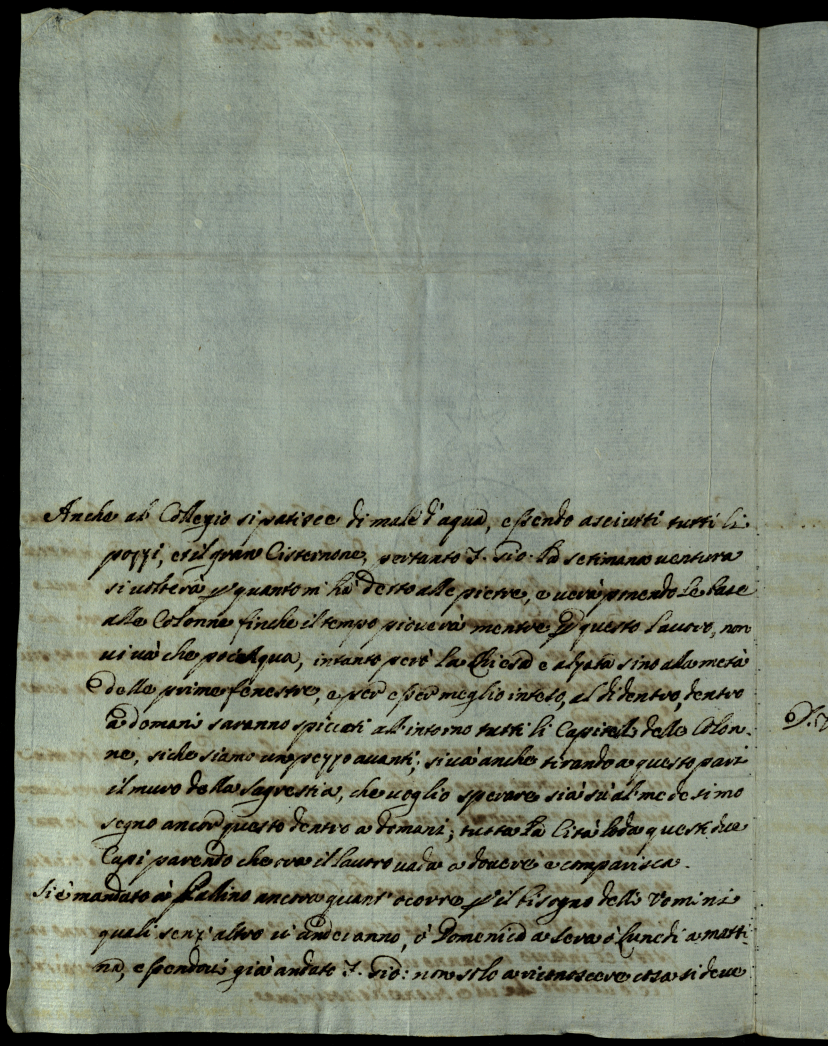 Anche al Collegio si patisce di male d'aqua, essendo asciutti tutti li
pozzi, e sil gran Cisternone, pertanto F. Gio: la setimana ventura
si volterà p quanto m'hà detto alle pietre, e verà ponendo le base
alle Colonne finche il tempo pioverà mentre p questo lauoro, non
ui và che poc'aqua, intanto però la Chiesa è alzata sino alla metà
delle prime fenestre, e per esser meglio inteso, al di dentro, dentro
à domani saranno spiccati all'intorno tutti li Capitelli delle Colon-
ne, siche siamo un pezzo auanti; si và anche tirando a questo pari
il muro della Sagrestia, che uoglio sperare sia sù al medesimo
segno ancor questo dentro a domani; tutta la Cità loda questi due
Capi parendo che ora il lauoro uada a douere e comparisca.
Si è mandato à ancora quant'ocorre p il bisogno delli Vomini
quali senz'altro ui anderanno, ò Domenica a sera ò Lunedi a matti-
na, essendoui già andato F. Gio: non solo a riconoscere cosa si deue